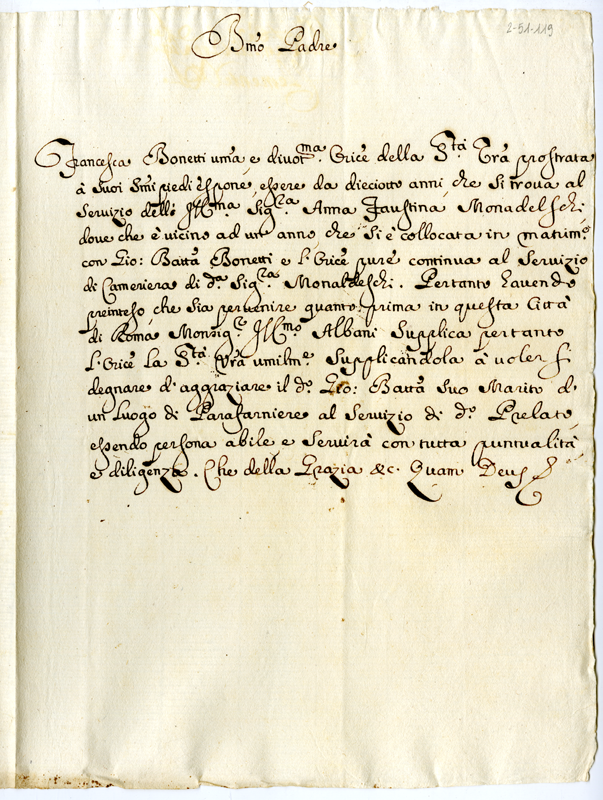 2-51-119
Bmo Padre
Francesca Bonetti uma e divotma. Orice della Stà Vrà prostrata
à suoi Smi piedi espone, essere da dieciotto anni, che si trova al
Servizio dell' Illma Sigra Anna Faustina Monadelschi
dove che è vicino ad un' anno che si è collocata in matrimo.
con Gio: Battà Bonetti e l'Orice pure continua al Servizio
di Cameriera di da. Sigra Monaldeschi. Pertanto havendo
preinteso, che sia pervenire quanto prima in questa Città
di Roma Monsigr. Illmo Albani Supplica pertanto
l'Orice la Stà Vrà umilme. Supplicandola à voler
degnare d'aggraziare il do. Gio: Battà Suo Marito di
un Luogo di Parafarniere al Servizio di do. Prelato
essendo persona abile e Servirà con tutta puntualità
e diligenza. Che della Grazia &c. Quam Deus